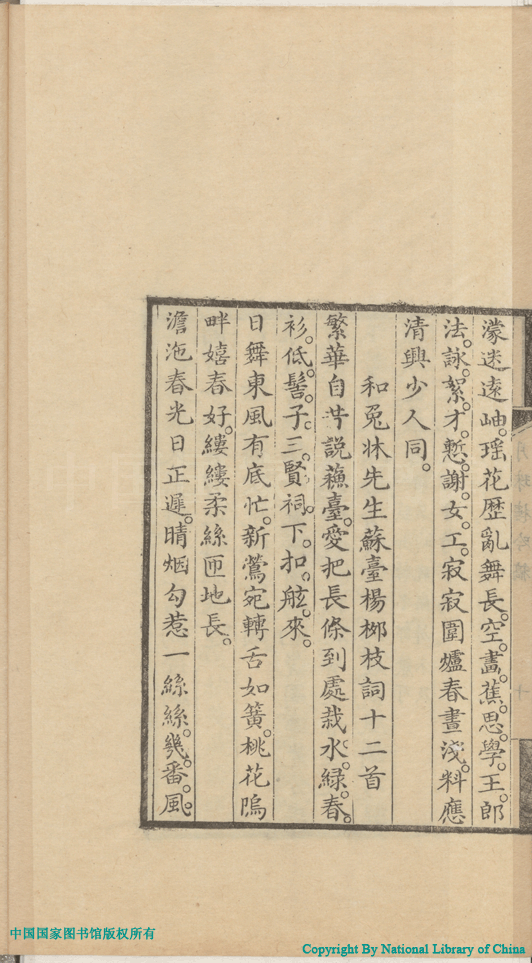 濛迷遠岫。瑶花歷亂舞長。空。畵。蕉。思。學。王。郎
法。詠。絮。才。慙。謝。女。工。寂寂圍爐春晝淺。料應
清興少人同。
和兎牀先生蘇臺楊栁枝詞十二首
繁華自昔說蘓臺。愛把長條到處栽。水。緑。春。
衫。低。髻。子。三。賢。祠。下。扣。舷。來。
日舞東風有底忙。新鶯宛轉舌如簧。桃花塢
畔嬉春好。縷縷柔絲匝地長。
澹沲春光日正遲。晴烟勾惹一絲絲。幾。番。風。
中国国家图书馆版权所有
Copyright By National Library of China